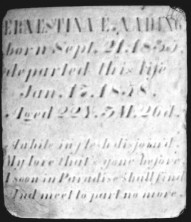 ERNESTINA E.
born Sept. 21. 1855
departed this life
Jan. 17. 1878.
Aged 22Y. 3M. 26d.
Awhile in flesh disjoin'd
My love that's gone before
I soon in Paradise shall find
And meet to part no more